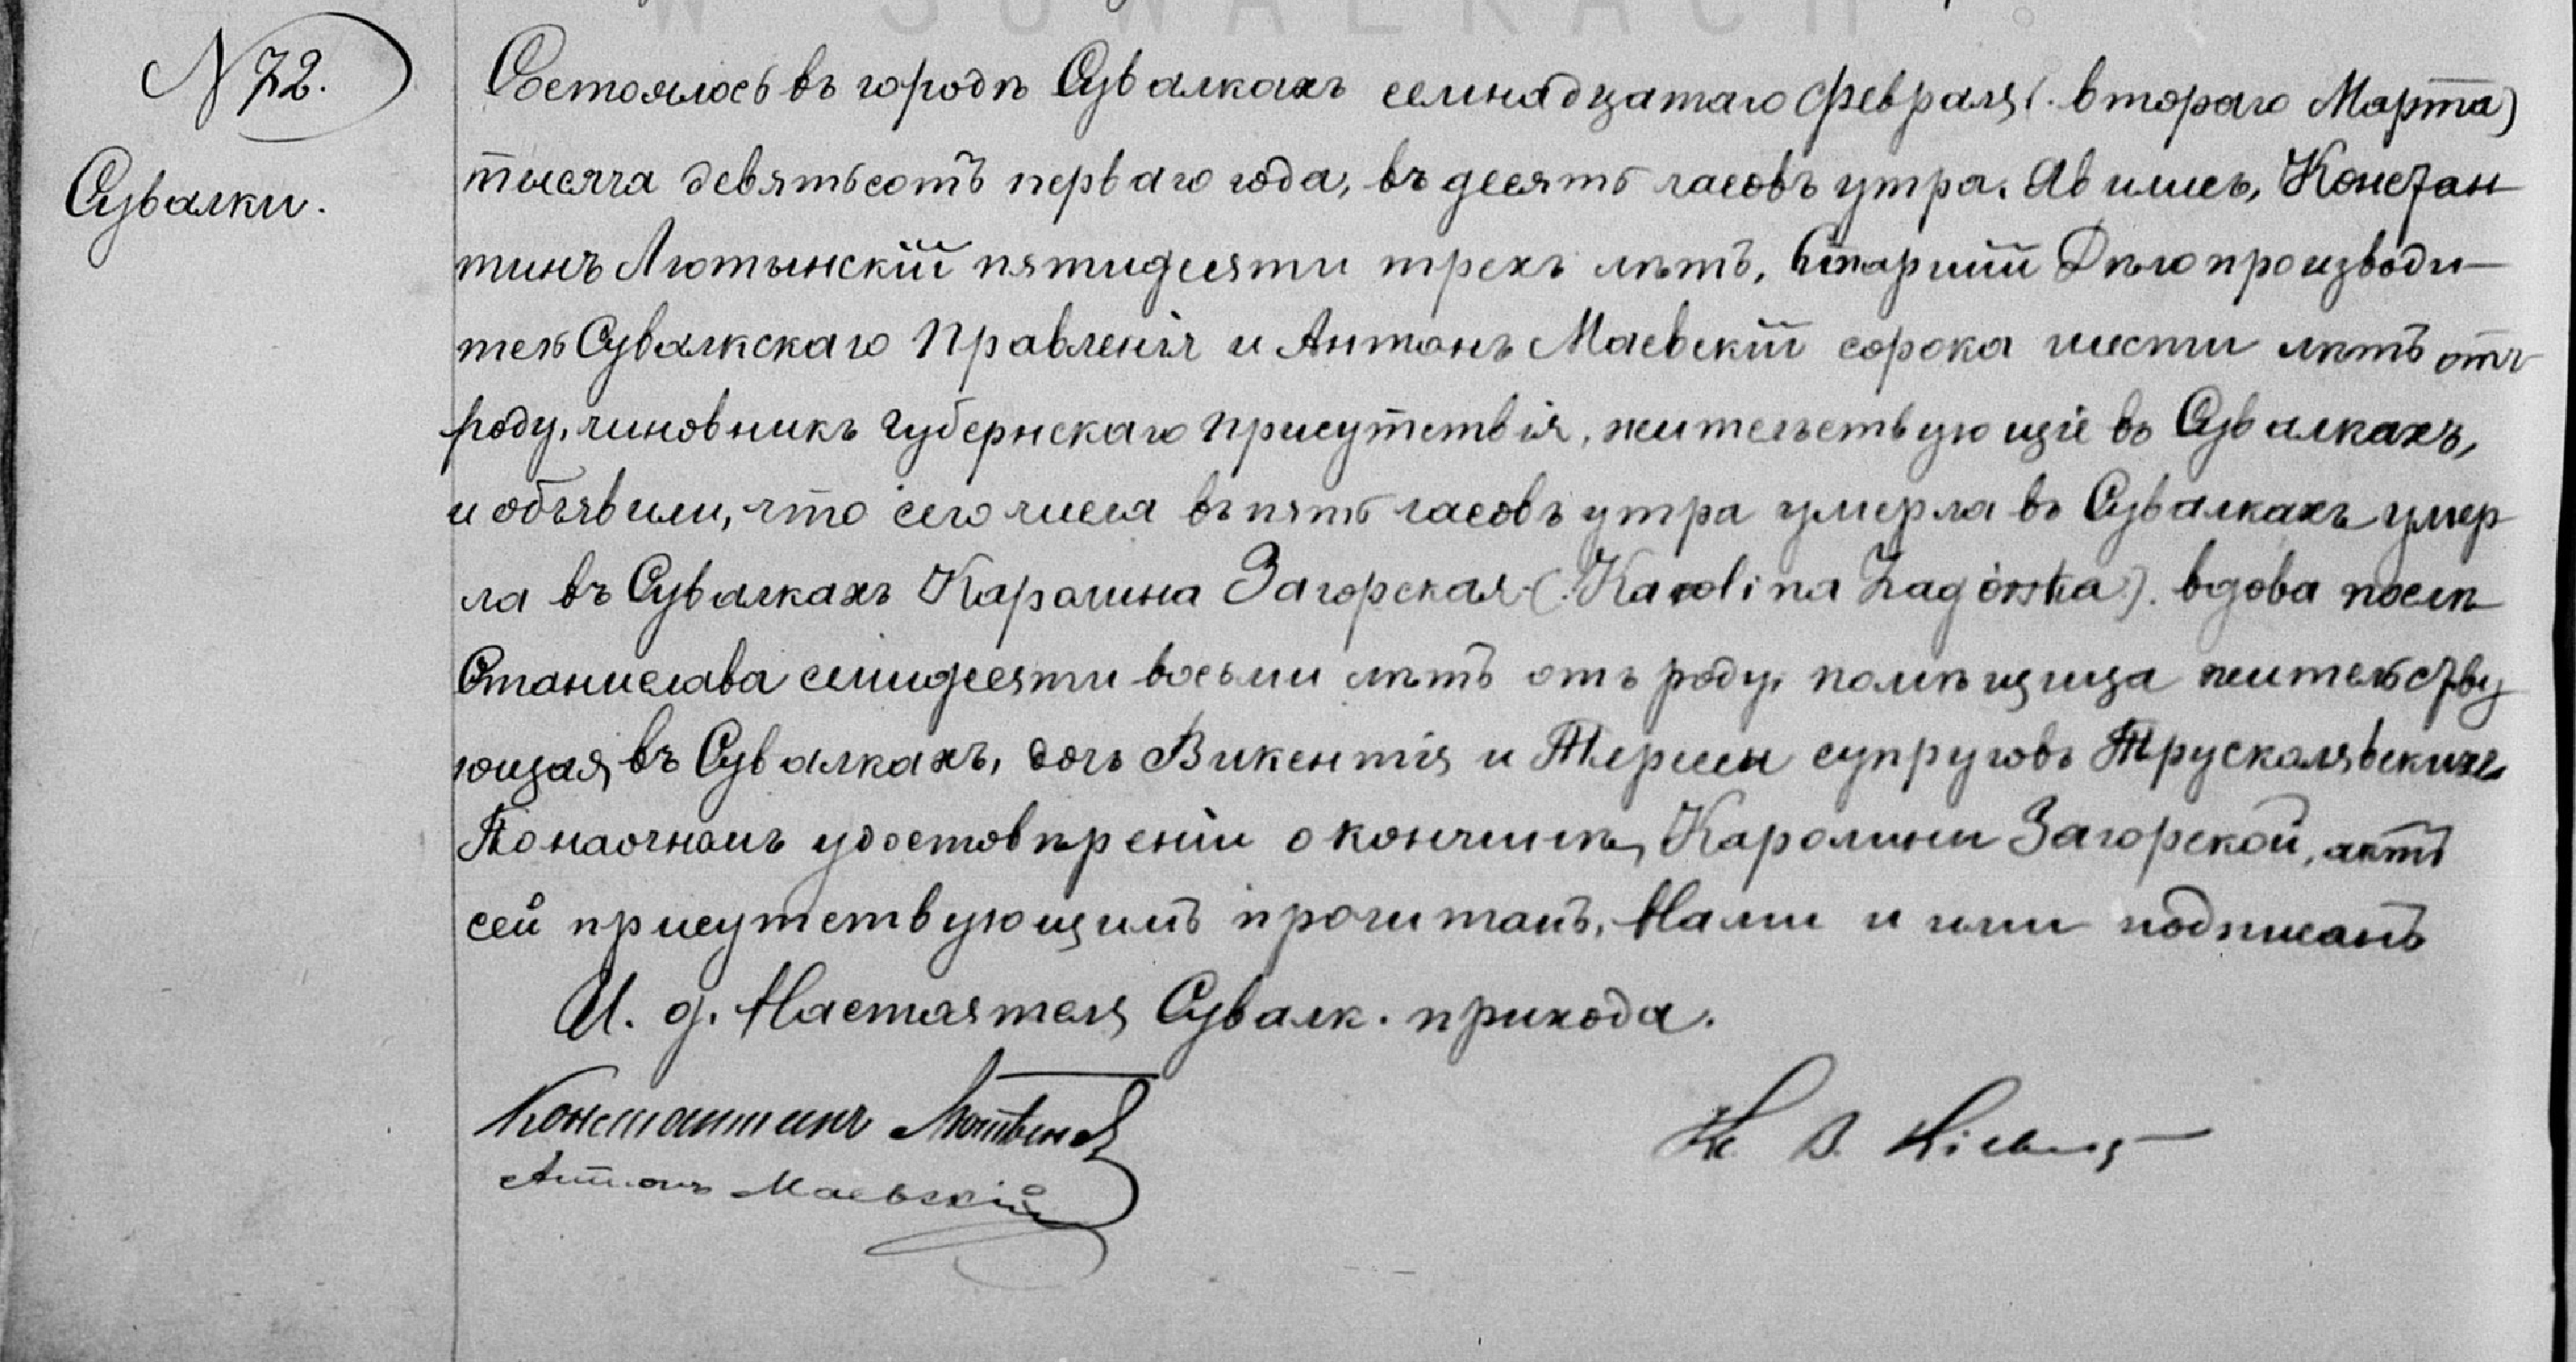 W SUWAŁKACH
N 72.
Сувалки.
Состоялось въ городѣ Сувалкахъ семнадцатаго Февраля (. втораго Марта)
тысяча девятьсотъ перваго года, въ десять часовъ утра. Явились, Констан
тинъ Лютынскій пятидесяти трехъ лѣтъ, Старшій Дѣлопроизводи-
тель Сувалкскаго Правленія и Антонъ Маевскій сорока шести лѣтъ отъ
роду, чиновникъ Губернскаго Присутствія, жительствующіе въ Сувалкахъ,
и объявили, что сего числа въ пять часовъ утра умерла въ Сувалкахъ умер
ла въ Сувалкахъ Каролина Загорская (. Karolina Zagórska). вдова послѣ
Станислава семидесяти восьми лѣтъ отъ роду, помѣщица жительству
ющая въ Сувалкахъ, дочь Викентія и Терезы супруговъ Трусколявскихъ
По наочномъ удостовѣреніи о кончинѣ Каролины Загорской, актъ
сей присутствующимъ прочитанъ, Нами и ими подписанъ
И. д. Настоятеля Сувалк. прихода.
Константинъ
Антонъ Маевскій